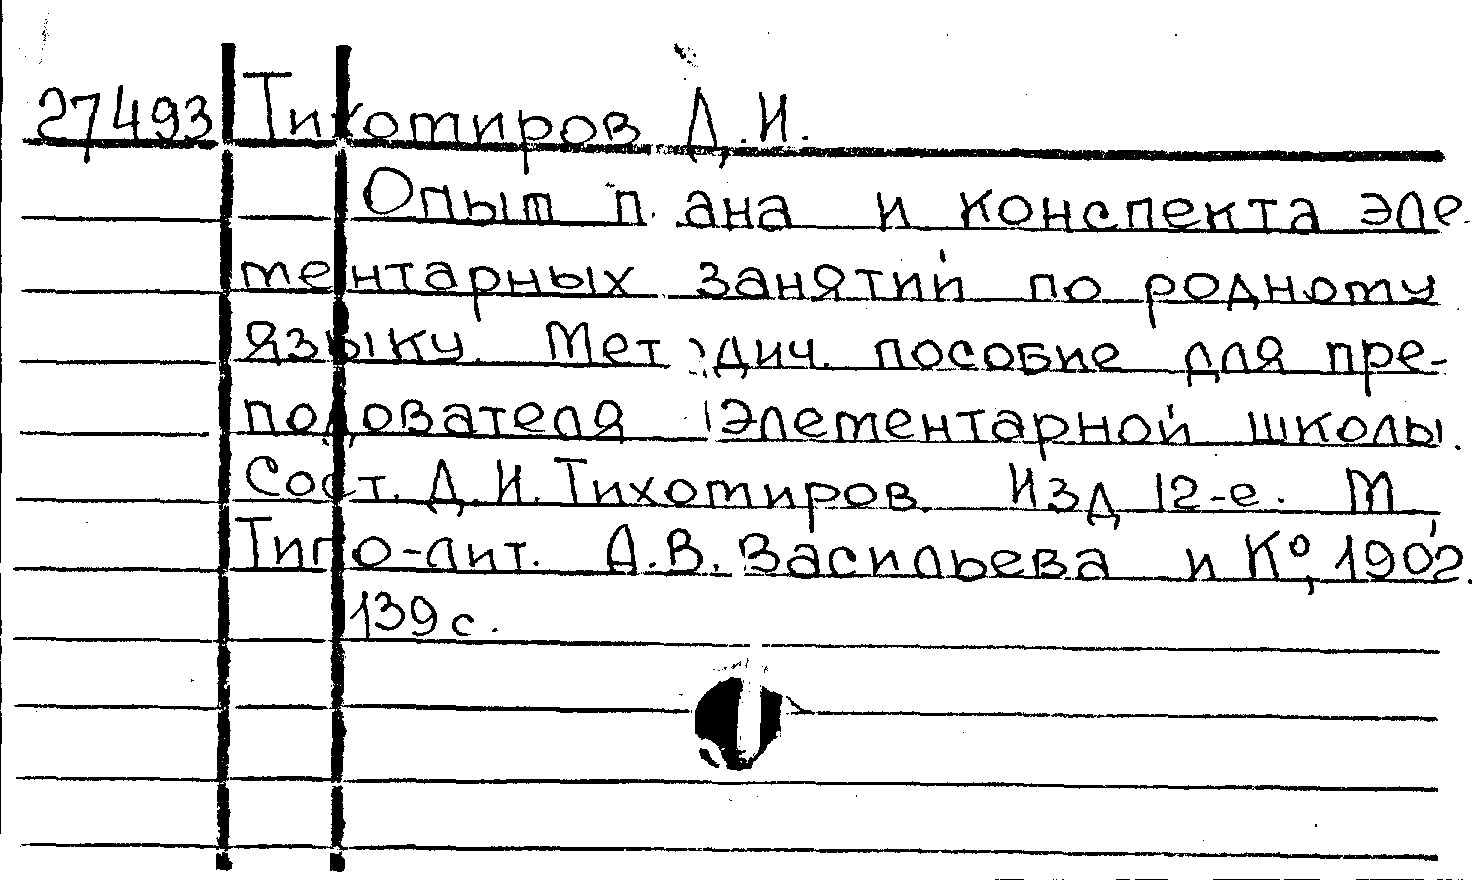 27493 Тихомиров Д.И.
Опыт плана и конспекта эле-
ментарных занятий по родному
языку. Методич. пособие для пре-
подователя элементарной школы.
Сост. Д.И.Тихомиров. Изд 12-е. М,
Типо-лит. А.В.Васильева и К°, 1902.
139 с.